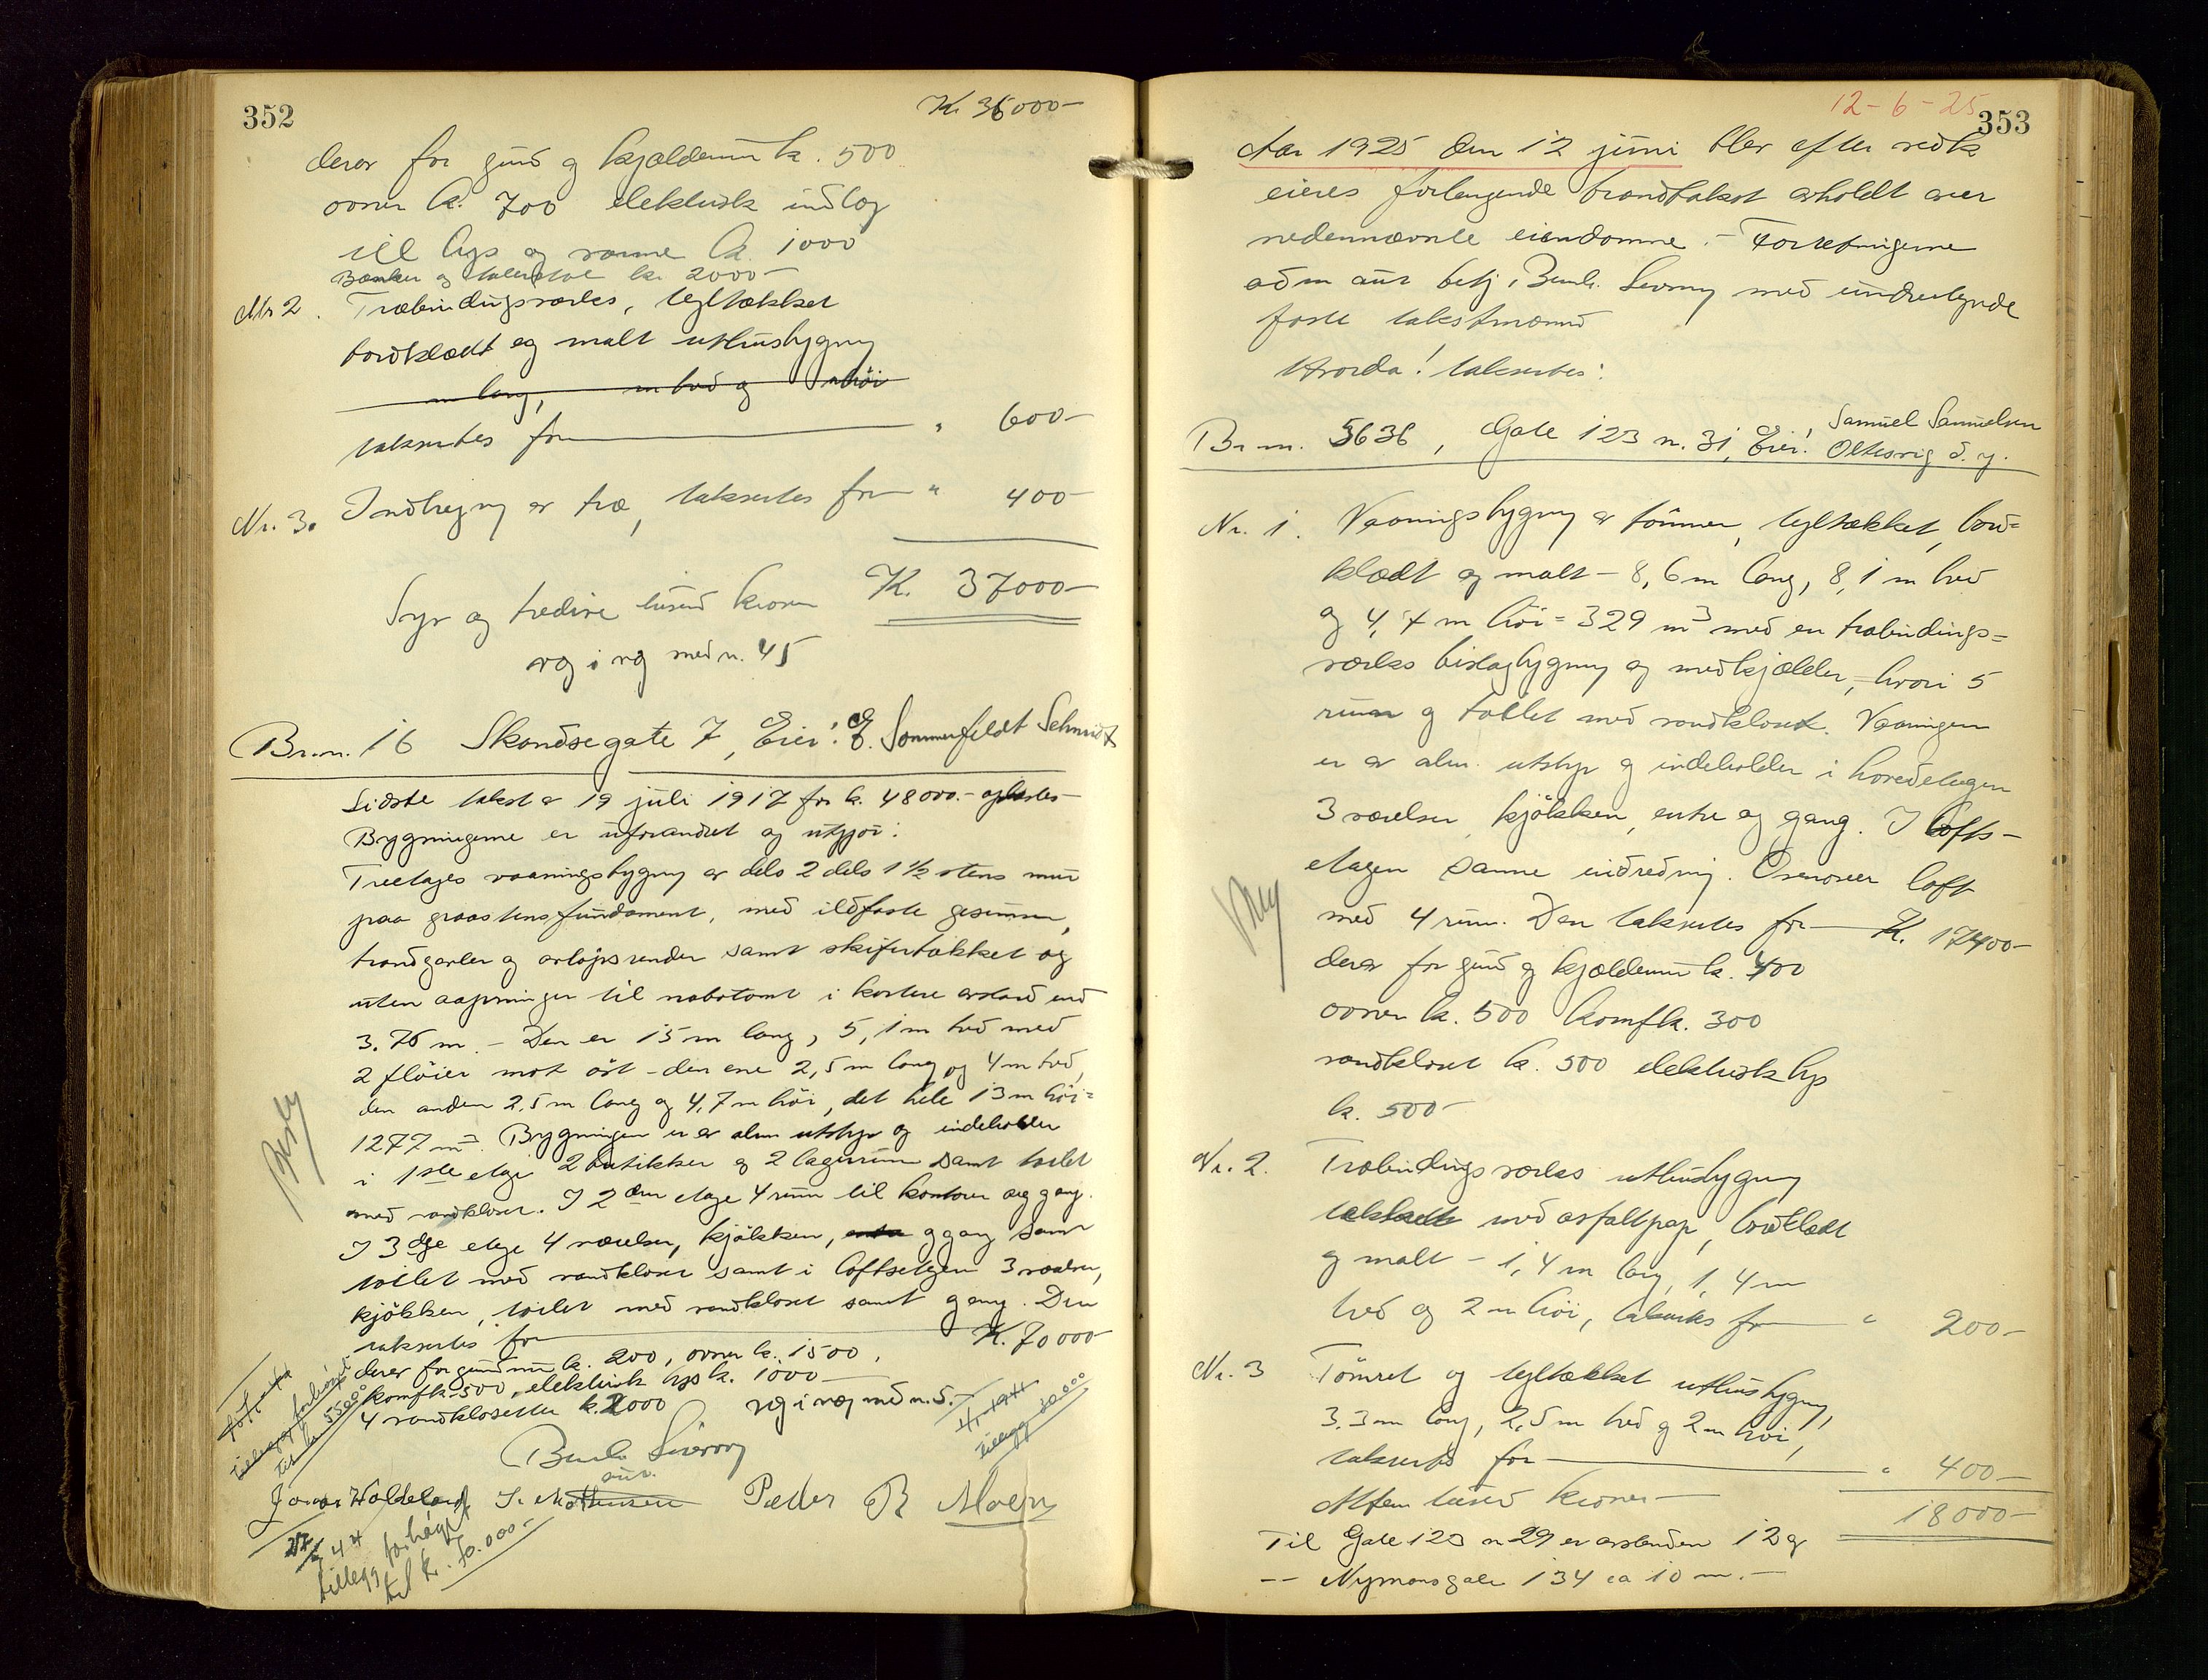 352
K. 36000-
derav for grund og kjælderrum k. 500
ovner k. 700 elektrisk indlæg
til lys og varme k. 1000
Bænker og talerstol kr. 2000-
Nr. 2. Træbindingsverks, tegltækket
bordklædt og malt uthusbygning
m lang, m bred og m høi
takseres for " 600-
Nr. 3. Indhegning av træ, takseres for " 400-
K. 37000-
Syv og tredive tusind kroner
væg i væg med n. 45
Br.n. 16 Skandsegate 7, Eier: E. Sommerfeldt Schmidt
Sidste takst av 19 juli 1917 for k. 48000.-
Bygningerne er uforandret og utgjør:
Treetages vaaningsbygning av dels 2 dels 1 1/2 stens mur
paa graastensfundament, med ildfaste gesimser,
brandgavler og avløpsrender samt skifertækket og
uten aapninger til nabotomt i kortere avstand end
3.76 m. - Den er 15 m lang, 5,1 m bred med
2 fløier mot øst - den ene 2,5 m lang og 4 m bred,
den anden 2,5 m lang og 4,7 m høi, det hele 13 m høi =
1277 m3. Bygningen er av alm utstyr og indeholder
i 1ste etage 2 butikker og 2 lagerrum samt toilet
med vandkloset. I 2den etage 4 rum til kontorer og gang.
I 3dje etage 4 værelser, kjøkken, entre og gang samt
toilet med vandkloset samt i loftsetagen 3 værelser,
kjøkken, toilet med vandkloset samt gang. Den
takseres for K. 70000-
derav for grundmur k. 200, ovner k. 1500,
komf k. 500, elektrisk lys k. 1000
4 vandklosetter k. 2000 væg i væg med n. 5.-
Tillegg forhøiet
til kr. 55000
4/4-1941
Tillegg 30.000
Bernh. Levorsen
aut.
Jonas Waldeland S. Mathiesen Peder B Moen
27/2 44
tillegg forhøget
til kr. 70.000.-
12-6-25
353
Aar 1925 den 12 juni blev efter vedk
eieres forlangende brandtakst avholdt over
nedennævnte eiendomme. - Forretningerne
adm aut betj. Bernh. Levorsen med undertegnede
faste takstmænd
Hvorda! takseres:
Br.n. 3636, Gate 123 n. 31, Eier: Samuel Samuelsen
Oltesvig d. y.
Nr. 1. Vaaningsbygning av tømmer, tegltækket, bord=
klædt og malt - 8,6 m lang, 8,1 m bred
og 4,7 m høi = 329 m3 med en træbindings=
verks bislagbygning og med kjælder, hvori 5
rum og toilet med vandkloset. Vaaningen
er av alm. utstyr og indeholder i hovedetagen
3 værelser, kjøkken, entre og gang. I lofts-
etagen samme indredning. Ovenover loft
med 4 rum. Den takseres for K. 17400-
derav for grund og kjælderrum k. 400
ovner k. 500 komf k. 300
vandkloset k. 500 elektrisk lys
k. 500-
Nr. 2. Træbindingsverks uthusbygning
tækket med asfaltpap, bordklædt
og malt - 1,4 m lang, 1,4 m
bred og 2 m høi, takseres for " 200-
Nr. 3 Tømret og tegltækket uthusbygning,
3.3 m lang, 2,5 m bred og 2 m høi,
takseres for " 400-
Atten tusind kroner 18000-
Til Gate 123 n 29 er avstanden 12 og
-- Nymansgate 134 ca 10 m.-